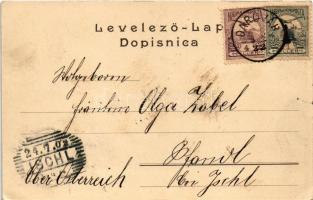 Levelező-Lap
Dopisnica
DARUVÁR
Wohlgeboren
Fräulein Olga Zobel
Pfandl
bei Ischl
Ober Österreich
24.7.0
ISCHL